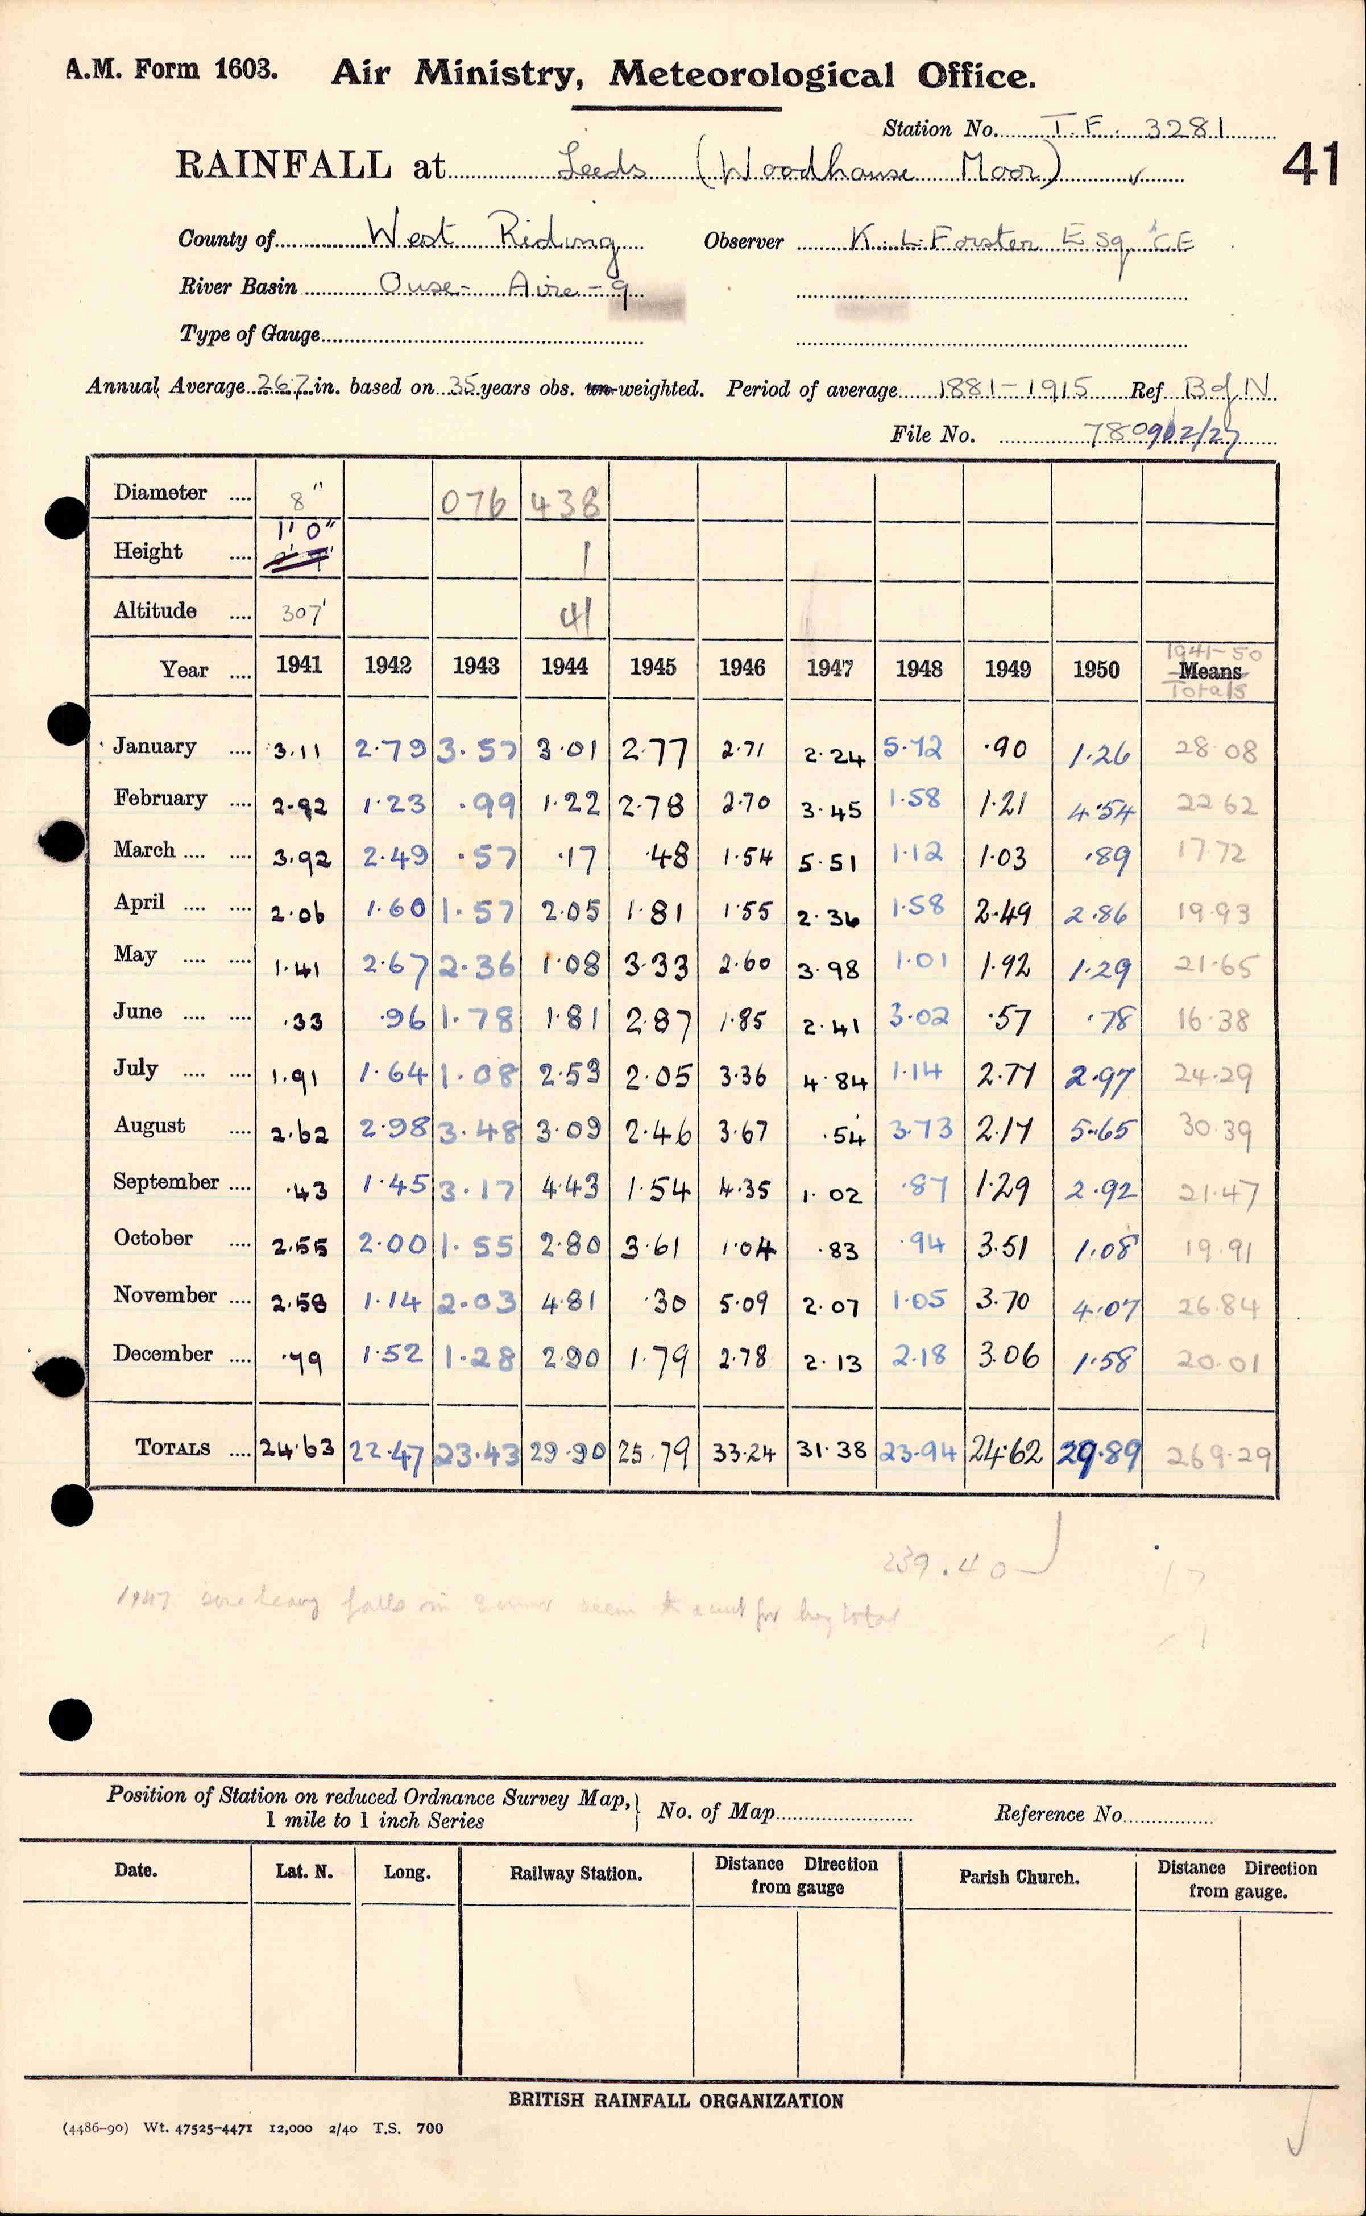 A.M. Form 1603. Air Ministry, Meteorological Office.
Station No. T.E. 3281
RAINFALL at Leeds (Woodhouse Moor) ✓ 41
County of West Riding Observer K. L. Forster Esq CE
River Basin Ouse - Aire - 9
Type of Gauge
Annual Average 26.7 in. based on 35 years obs. un-weighted. Period of average 1881-1915 Ref B of N.
File No. 780902/27
Diameter .... 8" 076 438
Height .... 1' 0" 1
Altitude .... 307' 41
Year .... 1941 1942 1943 1944 1945 1946 1947 1948 1949 1950 1941-50 Means Totals
January .... 3.11 2.79 3.57 3.01 2.77 2.71 2.24 5.72 .90 1.26 28.08
February .... 2.92 1.23 .99 1.22 2.78 2.70 3.45 1.58 1.21 4.54 22.62
March .... .... 3.92 2.49 .57 .17 .48 1.54 5.51 1.12 1.03 .89 17.72
April .... .... 2.06 1.60 1.57 2.05 1.81 1.55 2.36 1.58 2.49 2.86 19.93
May .... .... 1.41 2.67 2.36 1.08 3.33 2.60 3.98 1.01 1.92 1.29 21.65
June .... .... .33 .96 1.78 1.81 2.87 1.85 2.41 3.02 .57 .78 16.38
July .... .... 1.91 1.64 1.08 2.53 2.05 3.36 4.84 1.14 2.77 2.97 24.29
August .... 2.62 2.98 3.48 3.09 2.46 3.67 .54 3.73 2.17 5.65 30.39
September .... .43 1.45 3.17 4.43 1.54 4.35 1.02 .87 1.29 2.92 21.47
October .... 2.55 2.00 1.55 2.80 3.61 1.04 .83 .94 3.51 1.08 19.91
November .... 2.58 1.14 2.03 4.81 .30 5.09 2.07 1.05 3.70 4.07 26.84
December .... .79 1.52 1.28 2.90 1.79 2.78 2.13 2.18 3.06 1.58 20.01
TOTALS .... 24.63 22.47 23.43 29.90 25.79 33.24 31.38 23.94 24.62 29.89 269.29
239.40
1947 heavy falls in seem to for total
Position of Station on reduced Ordnance Survey Map,
1 mile to 1 inch Series
No. of Map Reference No.
Date. Lat. N. Long. Railway Station. Distance Direction from gauge Parish Church. Distance Direction from gauge.
BRITISH RAINFALL ORGANIZATION
(4486-90) Wt. 47525-4471 12,000 2/40 T.S. 700